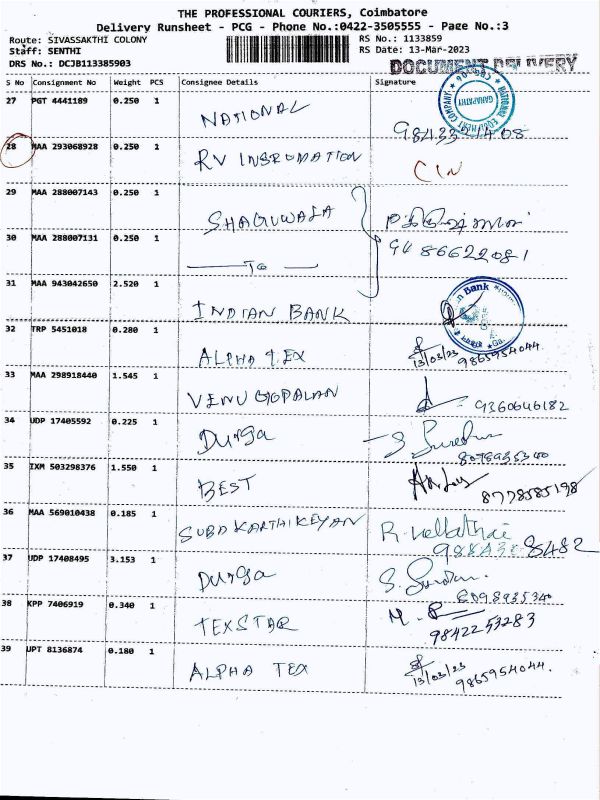 THE PROFESSIONAL COURIERS, Coimbatore
Delivery Runsheet - PCG - Phone No.:0422-3505555 - Page No.:3
Route: SIVASSAKTHI COLONY RS No.: 1133859
Staff: SENTHI RS Date: 13-Mar-2023
DRS No.: DCJB113385903 DOCUMENT DELIVERY
S No Consignment No Weight PCS Consignee Details Signature
27 PGT 4441189 0.250 1 NATIONAL
NATIONAL EQUIPMENT COMPANY GANAPATHY
9843321408
28 MAA 293068928 0.250 1 RV INSROMATION CIN
29 MAA 288007143 0.250 1 SHAGUWASA
30 MAA 288007131 0.250 1 TO 9486622081
31 MAA 943042650 2.520 1 INDIAN BANK
Bank
32 TRP 5451018 0.280 1 ALPHA TEX 13/03/23 9865954044.
33 MAA 298918440 1.545 1 VENUGOPALAN 9360646182
34 UDP 17405592 0.225 1 Durga S.
35 IXM 503298376 1.550 1 BEST 8778585198
36 MAA 569010438 0.185 1 SUBA KARTHIKEYAN R.
37 UDP 17408495 3.153 1 Durga S.
38 KPP 7406919 0.340 1 TEXSTAR M.
9842253283
39 UPT 8136874 0.180 1 ALPHA TEX 13/03/23 9865954044.